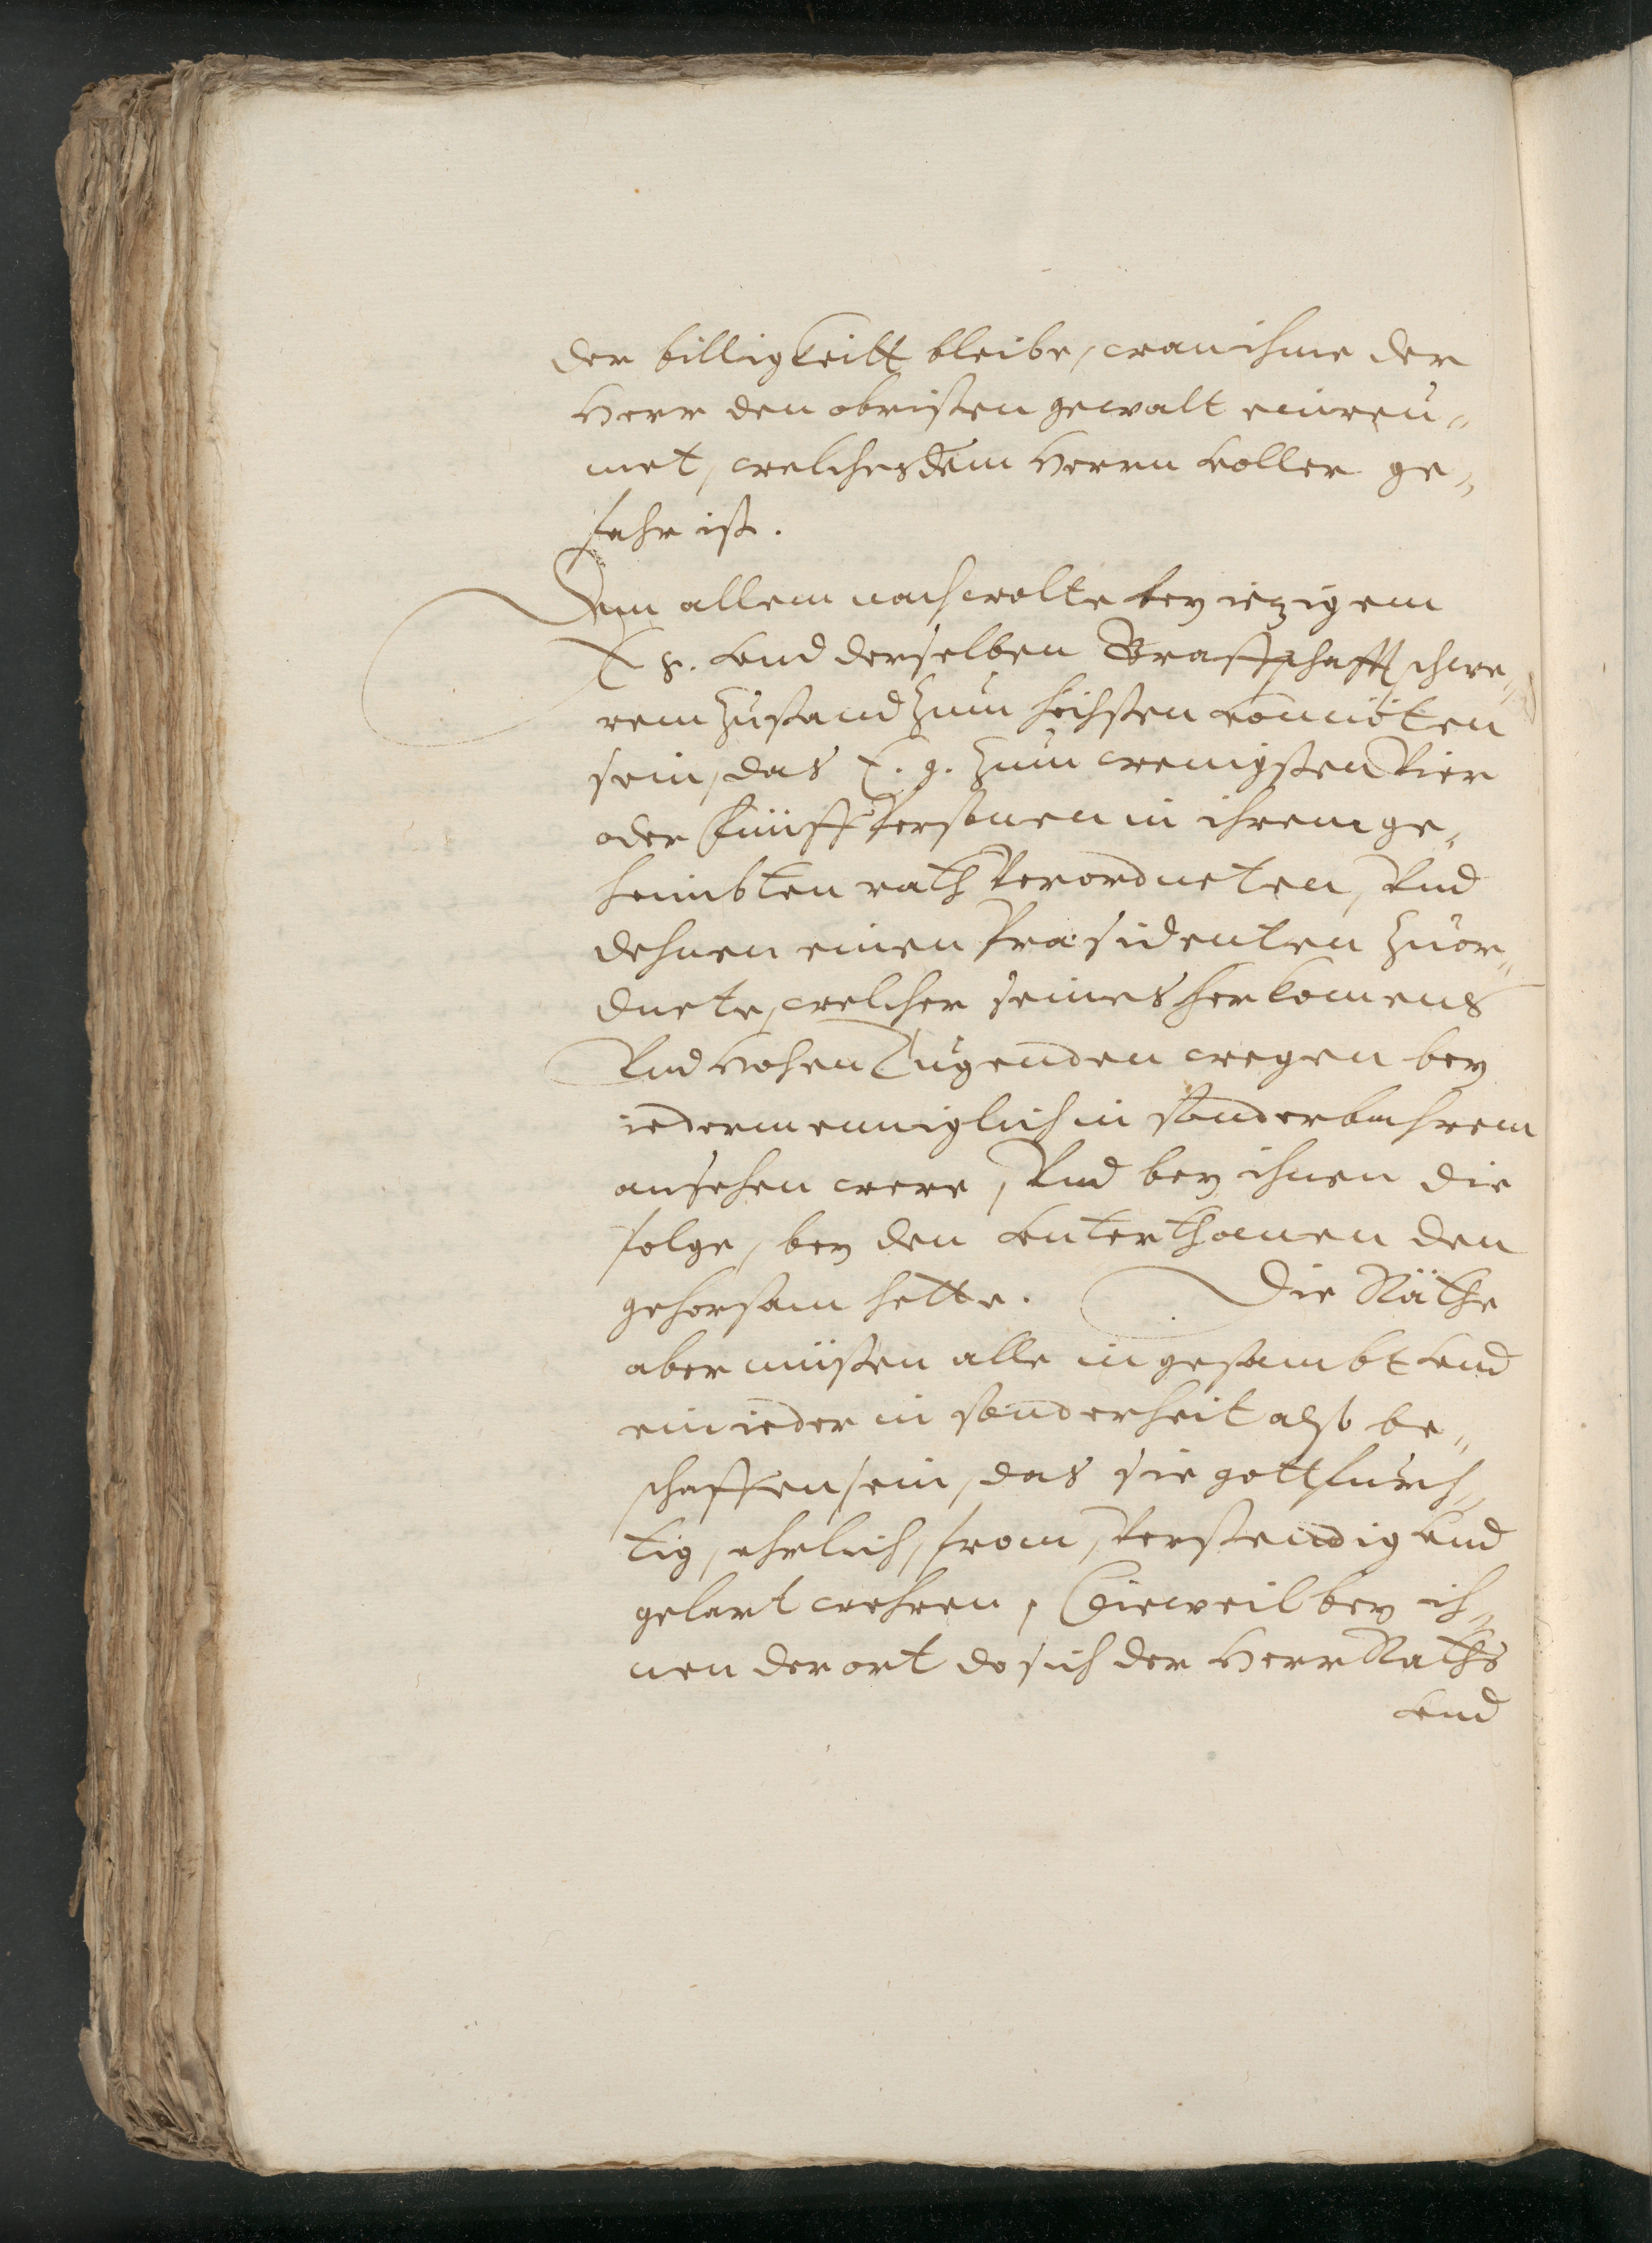 der billigkeitt bleibe, wan ihme der
Herr den obristen gewalt einreu„
met, welches dem Herrn voller ge„
fahr ist.
Dem allem nach wolte bey iezigem
E g. vnd derselben Graffschafft schwe„
rem Zustand zum höchsten vonnöten
sein, das E. g. zum wenigsten Vier
oder Fünff Personen in ihrem ge„
heimbten rath Verordneten, Vnd
dehnen einen Præsidenten zuor„
dnete, welcher seines herkomens
Vnd Hohen Tugenden wegen bey
iedermenniglich in sonderbahrem
ansehen were, Vnd bey ihnen die
folge, bey den vnterthanen den
gehorsam hette. Die Räthe
aber müsten alle in gesambt vnd
ein ieder in sonderheit also be„
schaffen sein, das sie gottfurch„
tig, ehrlich, from, Verstendig vnd
gelart wehren, Dieweil bey ih„
nen der ort do sich der Herr Raths
vnd